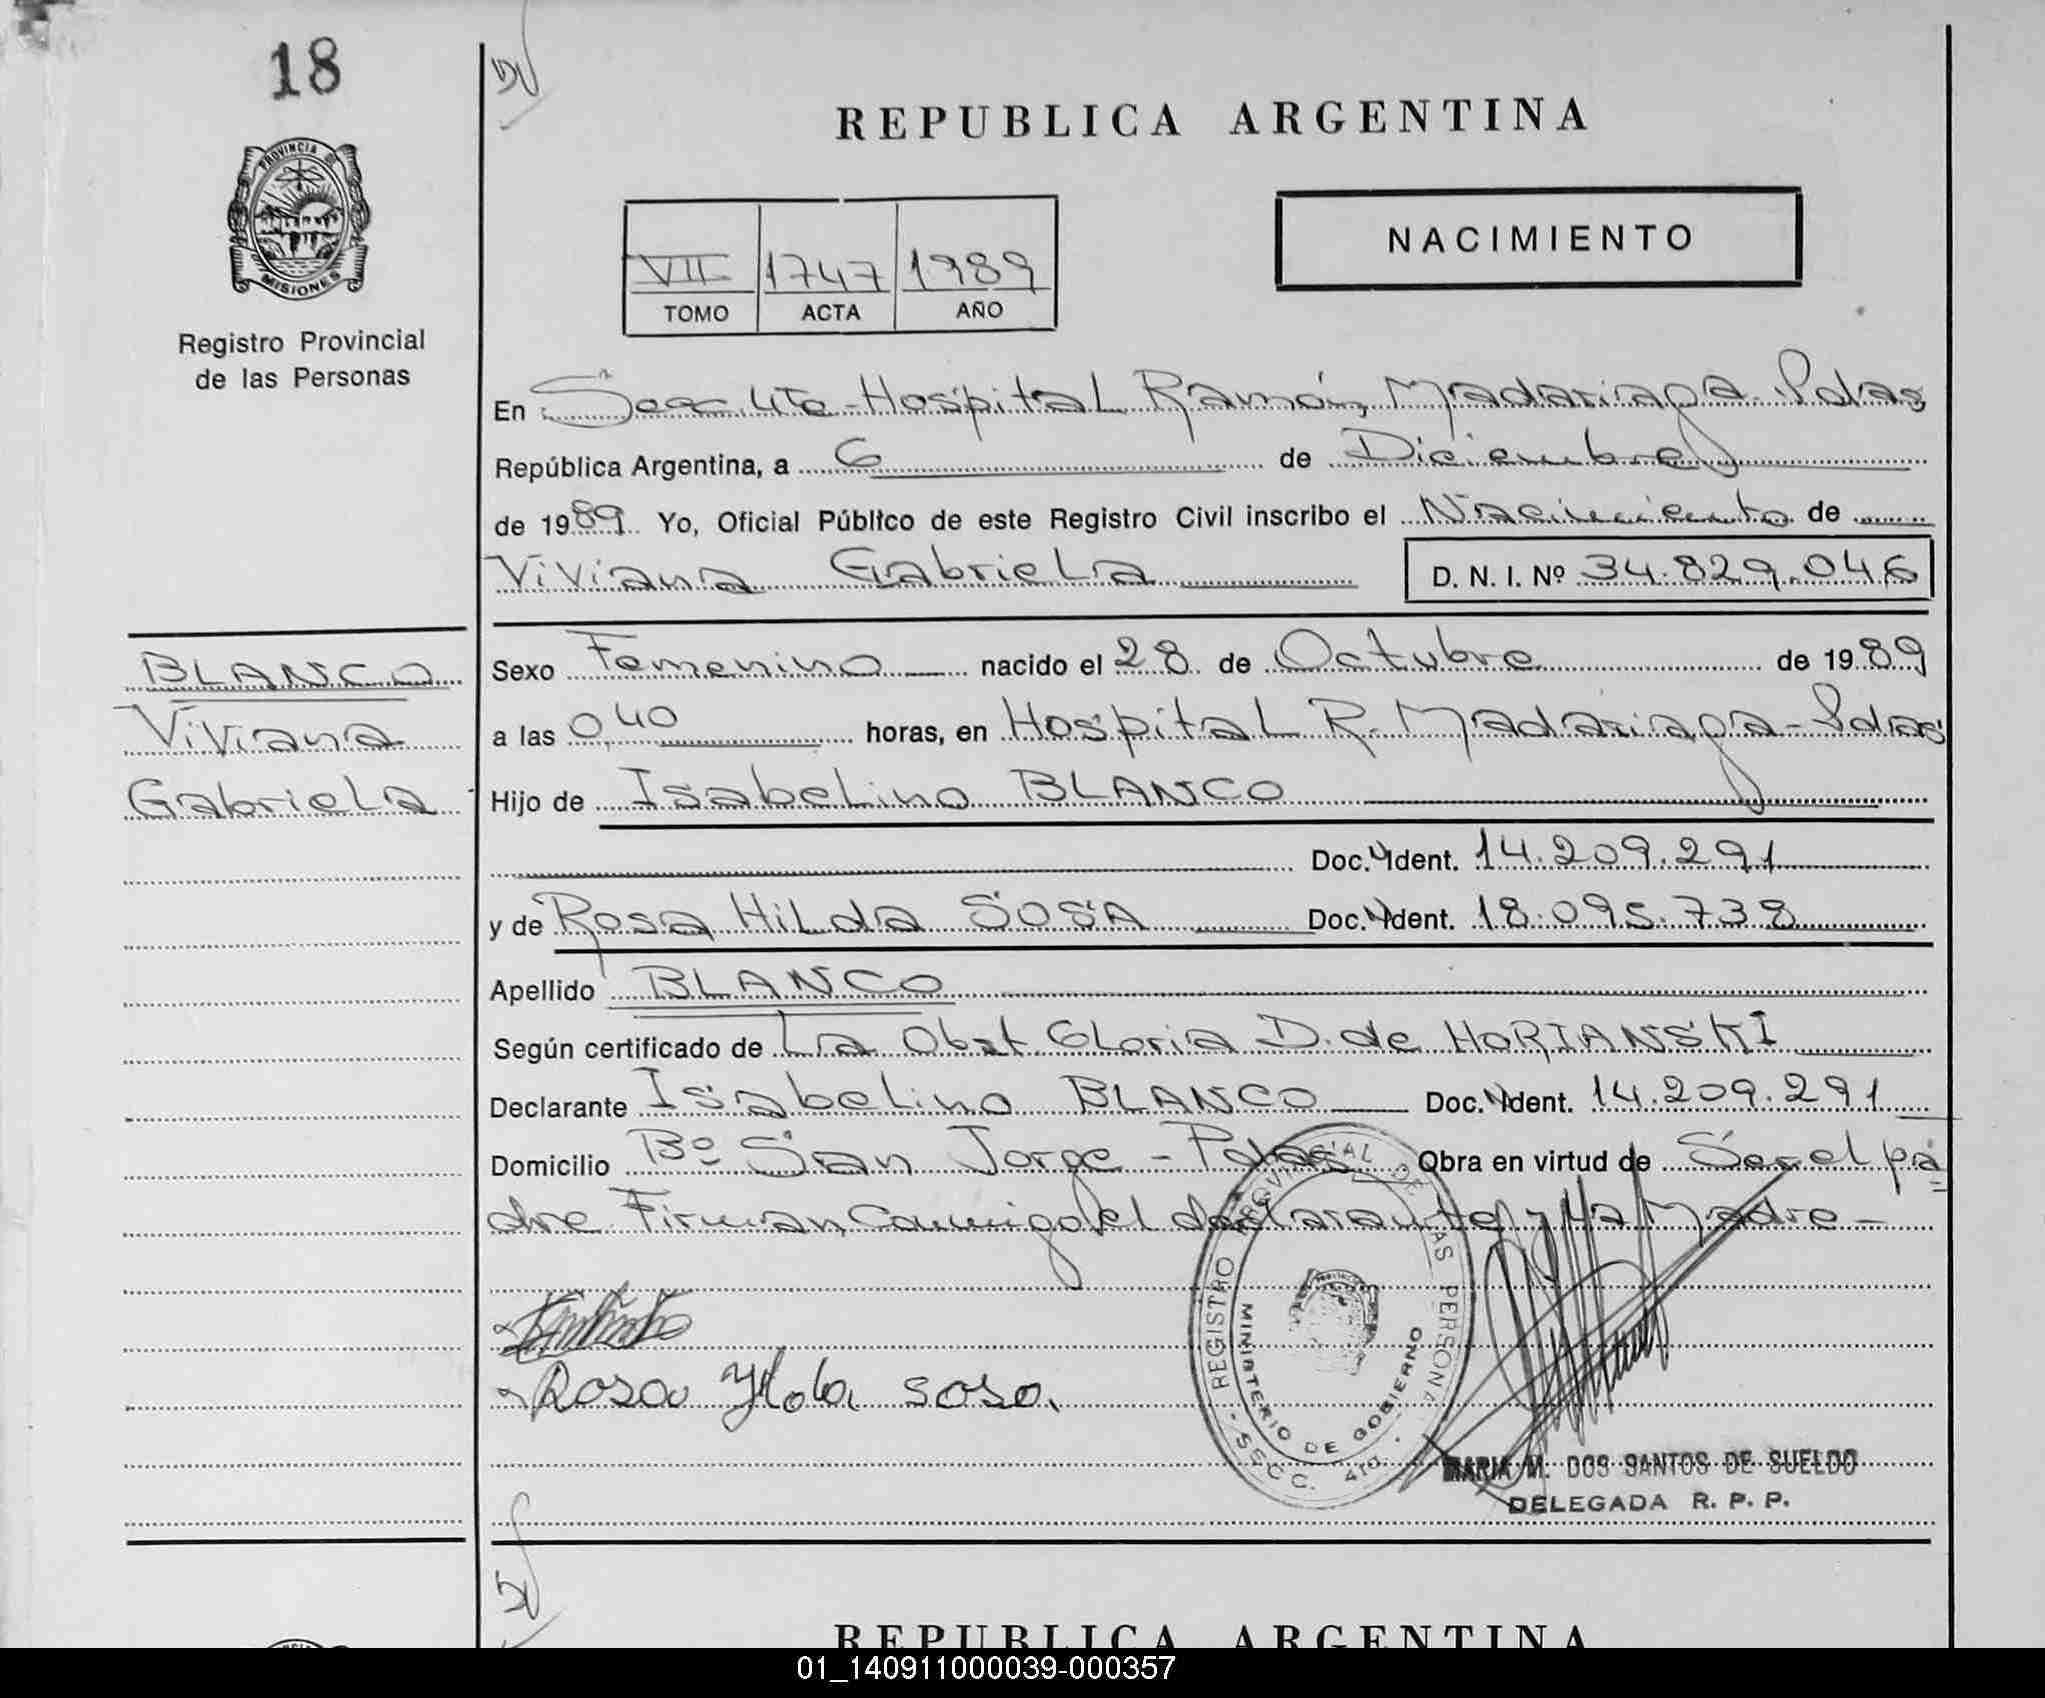 18
REPUBLICA ARGENTINA
PROVINCIA DE
MISIONES
Registro Provincial
de las Personas
NACIMIENTO
VII 1747 1989
TOMO ACTA AÑO
En Secc. 4ta - Hospital Ramón Madariaga - Pdas
República Argentina, a 6 de Diciembre
de 1989 Yo, Oficial Público de este Registro Civil inscribo el Nacimiento de
Viviana Gabriela D. N. I. Nº 34.829.046
BLANCO
Viviana
Gabriela
Sexo Femenino nacido el 28 de Octubre de 1989
a las 0,40 horas, en Hospital R. Madariaga - Pdas
Hijo de Isabelino BLANCO
Doc. Ident. 14.209.291
y de Rosa Hilda SOSA Doc. Ident. 18.095.738
Apellido BLANCO
Según certificado de La Obst Gloria D. de HORIANSKI
Declarante Isabelino BLANCO Doc. Ident. 14.209.291
Domicilio Bº San Jorge - Pdas Obra en virtud de Ser el pa
dre Firman Conmigo el declarante y La Madre -
Rosa Ylda sosa.
REGISTRO PROVINCIAL DE LAS PERSONAS
MINISTERIO DE GOBIERNO
SECC. 4ta.
MARIA M. DOS SANTOS DE SUELDO
DELEGADA R. P. P.
REPUBLICA ARGENTINA
01_140911000039-000357